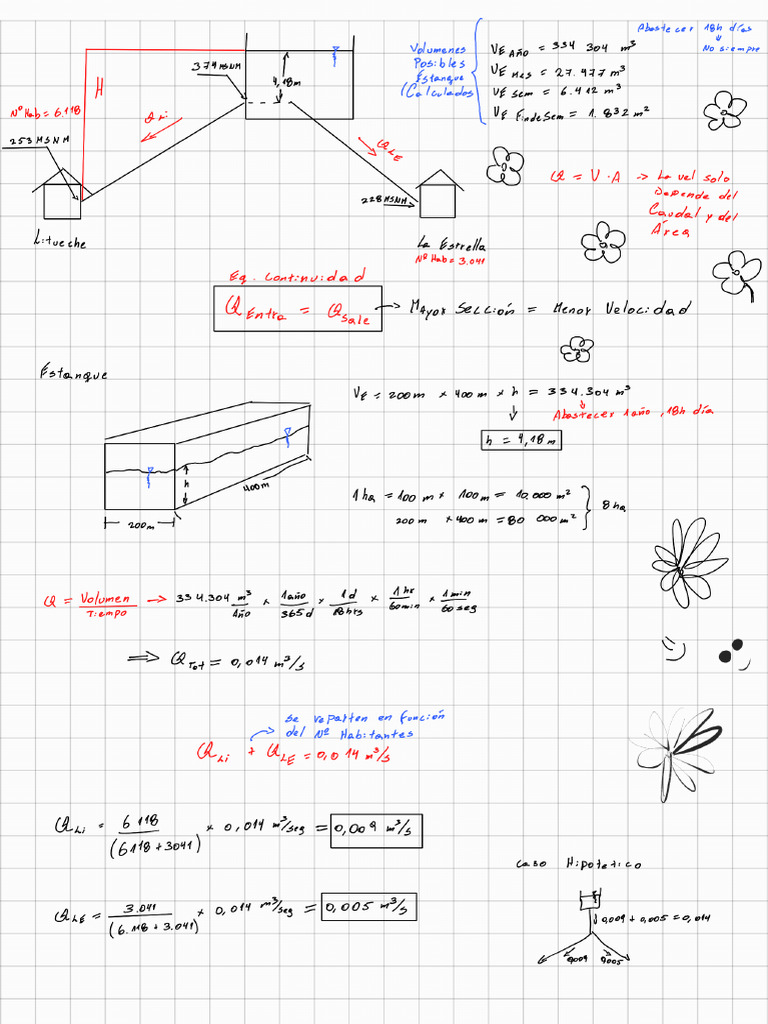 Abastecer 18h días
↓
No siempre
Volumenes
Posibles
Estanque
(Calculados
VE Año = 334 304 m³
VE Mes = 27.477 m³
VE Sem = 6.412 m³
VE FindeSem = 1.832 m²
374 MSNM
4,18m
H
Nº Hab = 6.118
QLi
253 MSNM
QLE
228 MSNM
Litueche
La Estrella
Nº Hab = 3.041
Q = V · A → La vel solo
Depende del
Caudal y del
Área
Eq. Continuidad
Q Entra = Q Sale → Mayor Sección = Menor Velocidad
Estanque
h
400m
200m
VE = 200m × 400m × h = 334.304 m³
Abastecer 1 año, 18h día
h = 4,18 m
1 ha = 100 m × 100m = 10.000 m²
200 m × 400 m = 80 000 m²
8 ha
Q = Volumen/Tiempo → 334.304 m³/1año × 1año/365d × 1d/18hrs × 1hr/60min × 1min/60seg
⇒ QTot = 0,014 m³/s
Se reparten en función
del Nº Habitantes
QLi + QLE = 0,014 m³/s
QLi = 6118/(6118+3041) × 0,014 m³/seg = 0,009 m³/s
Caso Hipotetico
0,009 + 0,005 = 0,014
0,009 0,005
QLE = 3.041/(6.118+3.041) × 0,014 m³/seg = 0,005 m³/s